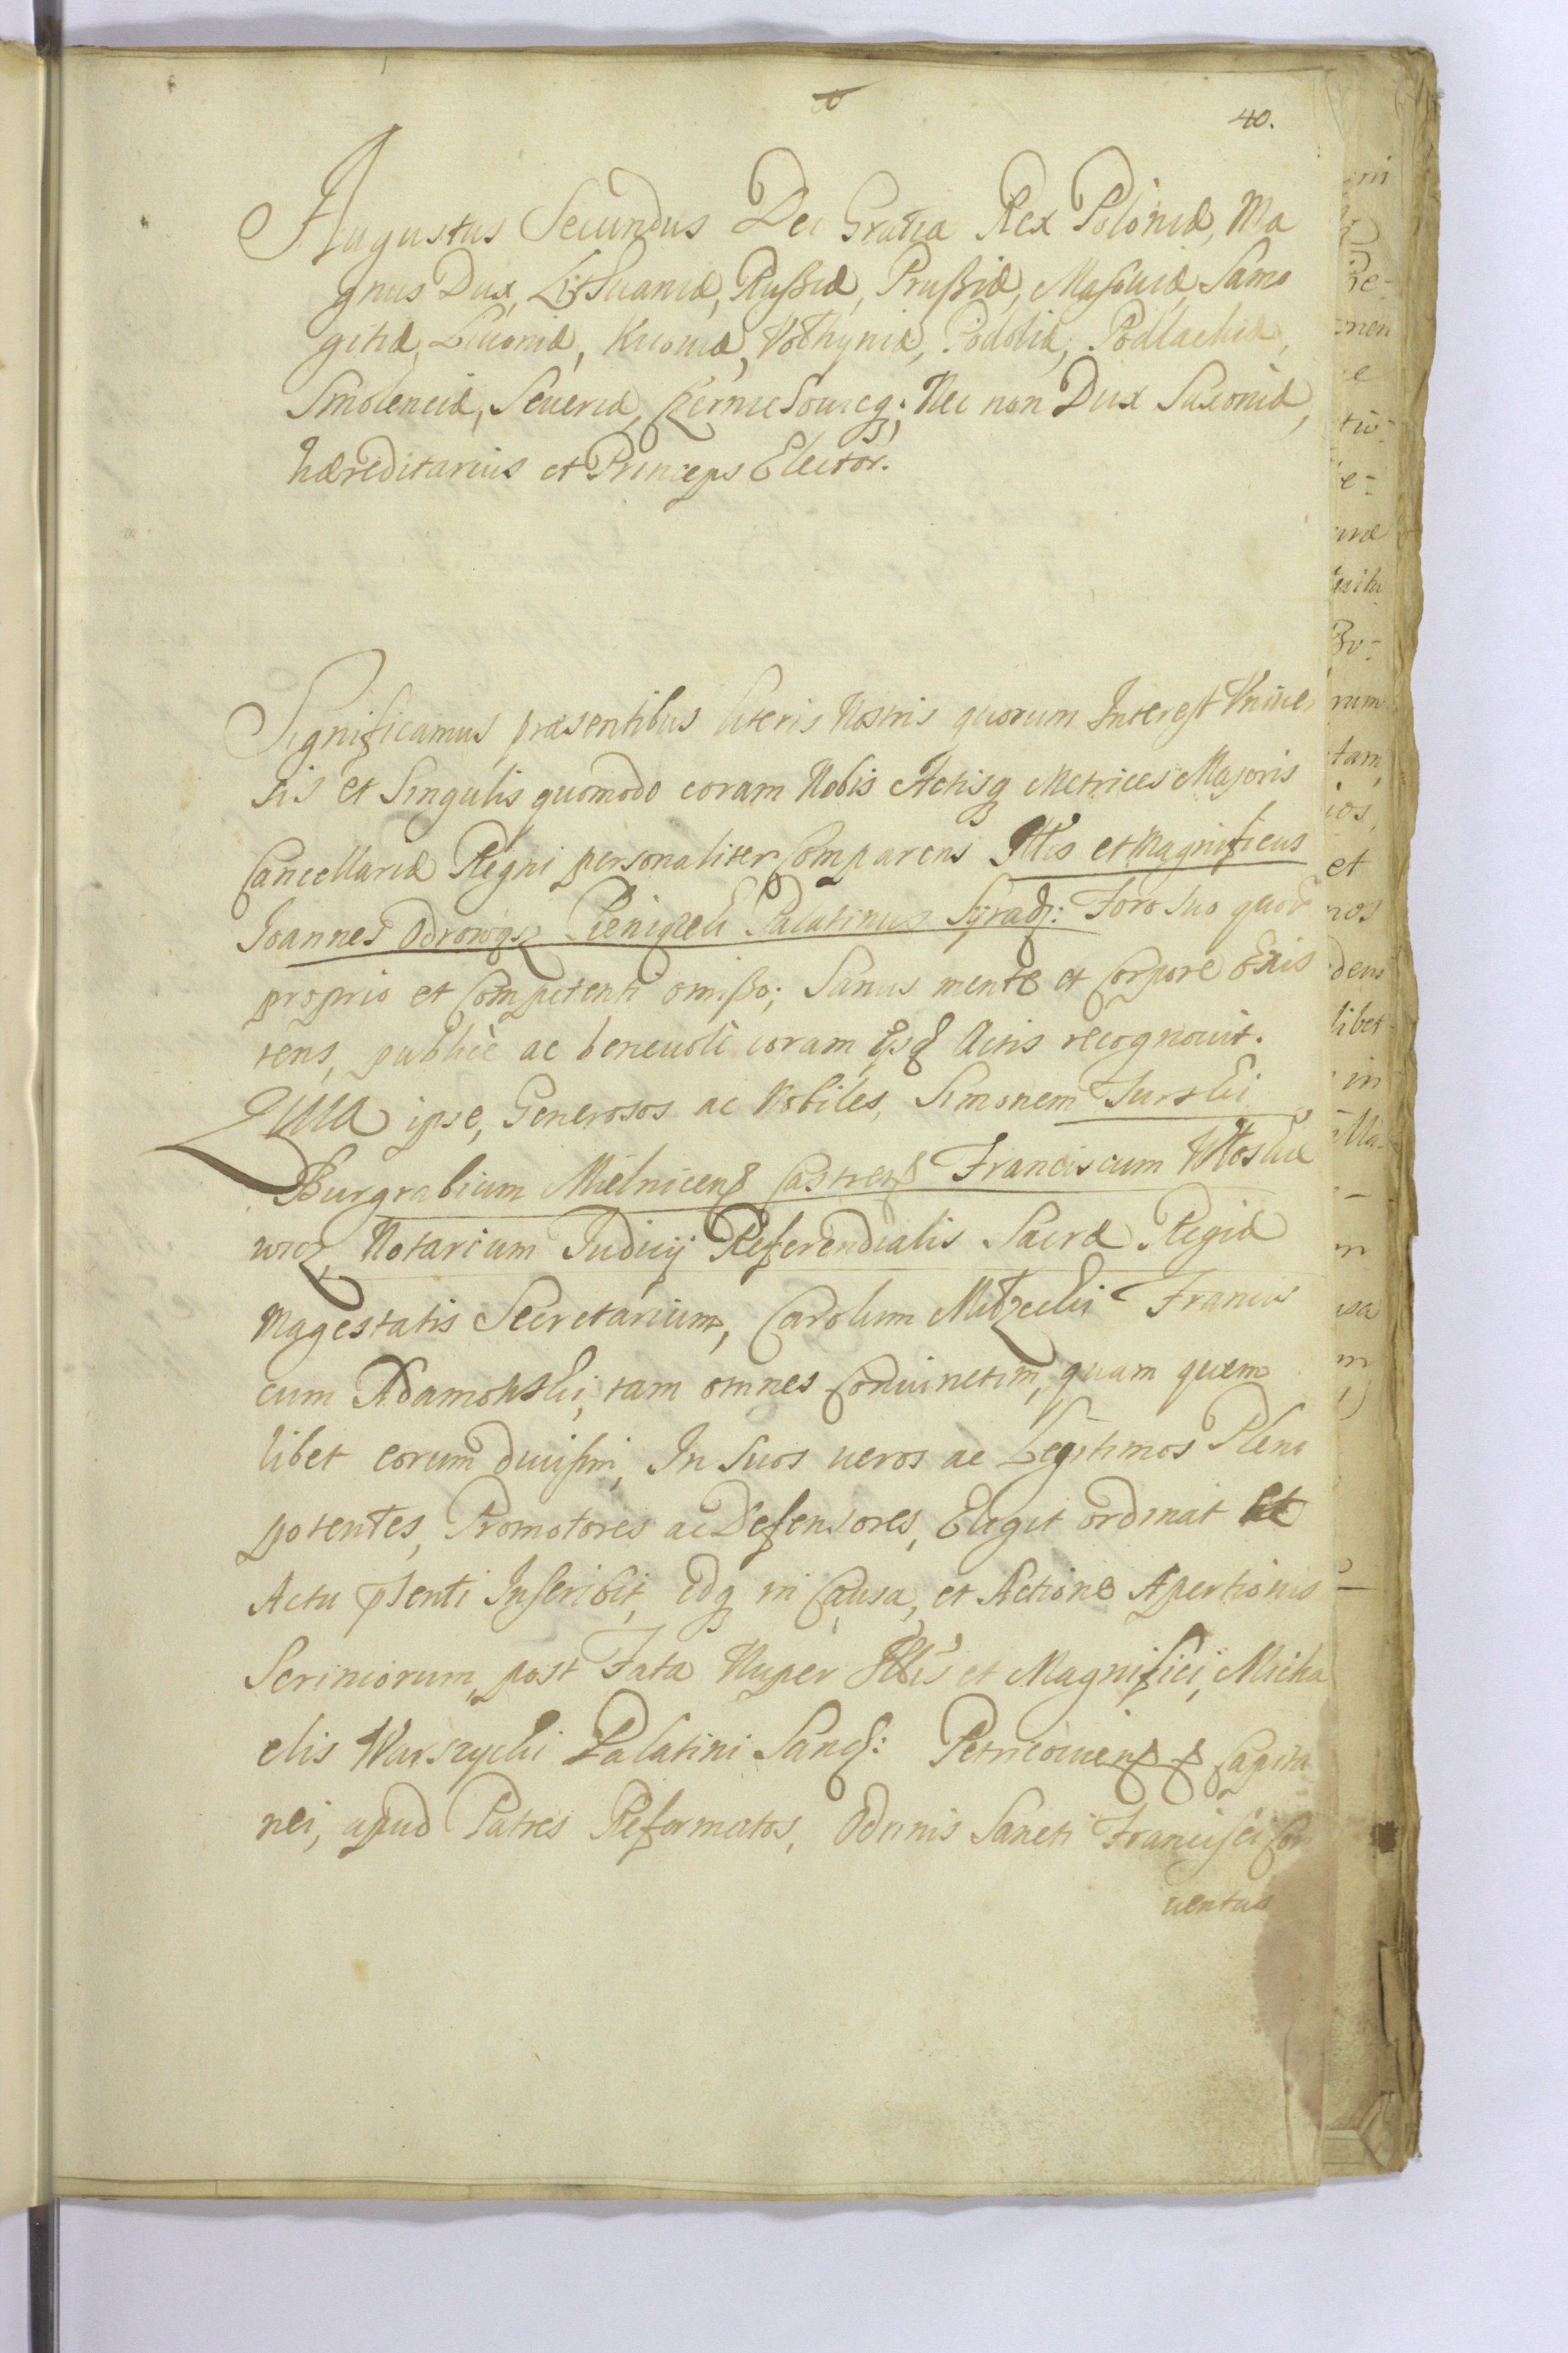 40.
Augustus Secundus Dei Gratia Rex Poloniæ, Ma
gnus Dux, Lithuaniæ, Rußiæ, Prußiæ, Masouiæ Samo
gitiæ, Liuoniæ, Kiouiæ, Volhyniæ, Podoliæ, Podlachiæ,
Smolenciæ, Seueriæ, Czerniechouieq; Nec non Dux Saxoniæ,
hæreditarius et Princeps Elector.
Significamus præsentibus literis Nostris quorum Interest Vniuer
sis et Singulis quomodo coram Nobis Actisq Metrices Majoris
Cancellariæ Regni personaliter Comparens Illis et Magnificus
Joannes Odrowąsz Pieniązek Palatinus Syradz: Foro suo quor
proprio et Competenti omißo; Sanus mente et Corpore Exis
tens, publicè ac beneuolè coram Actis recognouit.
Quia ipse, Generosos ac Nobiles, Simonem Turski
Burgrabium Mielnicens Castrens Franciscum Woski
wicz Notarium Judicij Referendialis Sacræ Regiæ
Magestatis Secretarium, Carolum Francis
cum Adamowski, tam omnes Coniunctim, quam quem
libet eorum diuisim, In Suos ueros ac Legitimos Pleni
potentes, Promotores ac Defensores, Elegit ordinat et
Actu pñsenti Inscribit, idq in Causa, et Actione Apertionis
Scriniorum, post Fata Nuper Illis et Magnifici, Micha
elis Warszycki Palatini Sand: Petricouiens Capita
nei, apud Patres Reformatos, Ordinis Sancti Francisci Con
uentus